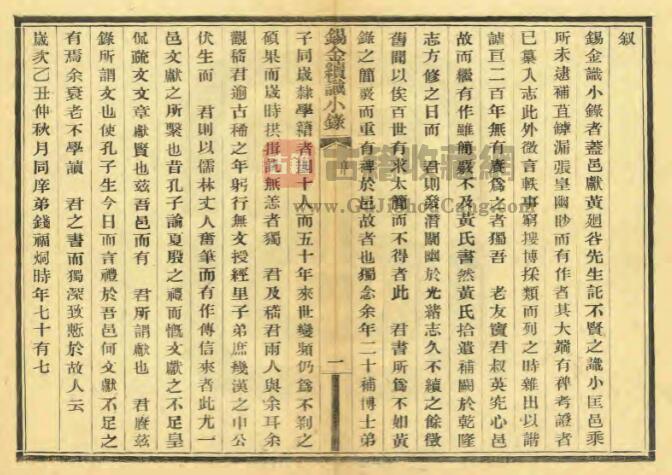 叙
錫金識小錄者蓋邑獻黃廻谷先生託不賢之識小匡邑乘
所未逮補苴罅漏張皇幽眇而有作者其大端有裨考證者
已纂入志此外微言軼事窮搜博採類而列之時雜出以諧
謔亘二百年無有賡爲之者獨吾 老友竇君叔英究心邑
故而繼有作雖簡嚴不及黃氏書然黃氏拾遺補闕於乾隆
志方修之日而 君則發潛闡幽於光緒志久不續之餘徵
舊聞以俟百世有求太簡而不得者此 君書所爲不如黃
錄之簡嚴而重有裨於邑故者也獨念余年二十補博士弟
錫金續識小錄 叙 一
子同歲隸學籍者四十人而五十年來世變頻仍爲不剝之
碩果而歲時拱揖無恙者獨 君及嵇君兩人與余耳余
觀嵇君逾古稀之年躬行無文授經里子弟庶幾漢之申公
伏生而 君則以儒林丈人奮筆而有作傳信來者此尤一
邑文獻之所繫也昔孔子論夏殷之禮而慨文獻之不足皇
侃疏文文章獻賢也茲吾邑而有 君所謂獻也 君賡茲
錄所謂文也使孔子生今日而言禮於吾邑何文獻不足之
有焉余衰老不學讀 君之書而獨深致慙於故人云
歲次乙丑仲秋月同庠弟錢福烔時年七十有七
古籍收藏网
www.GuJiShouCang.com